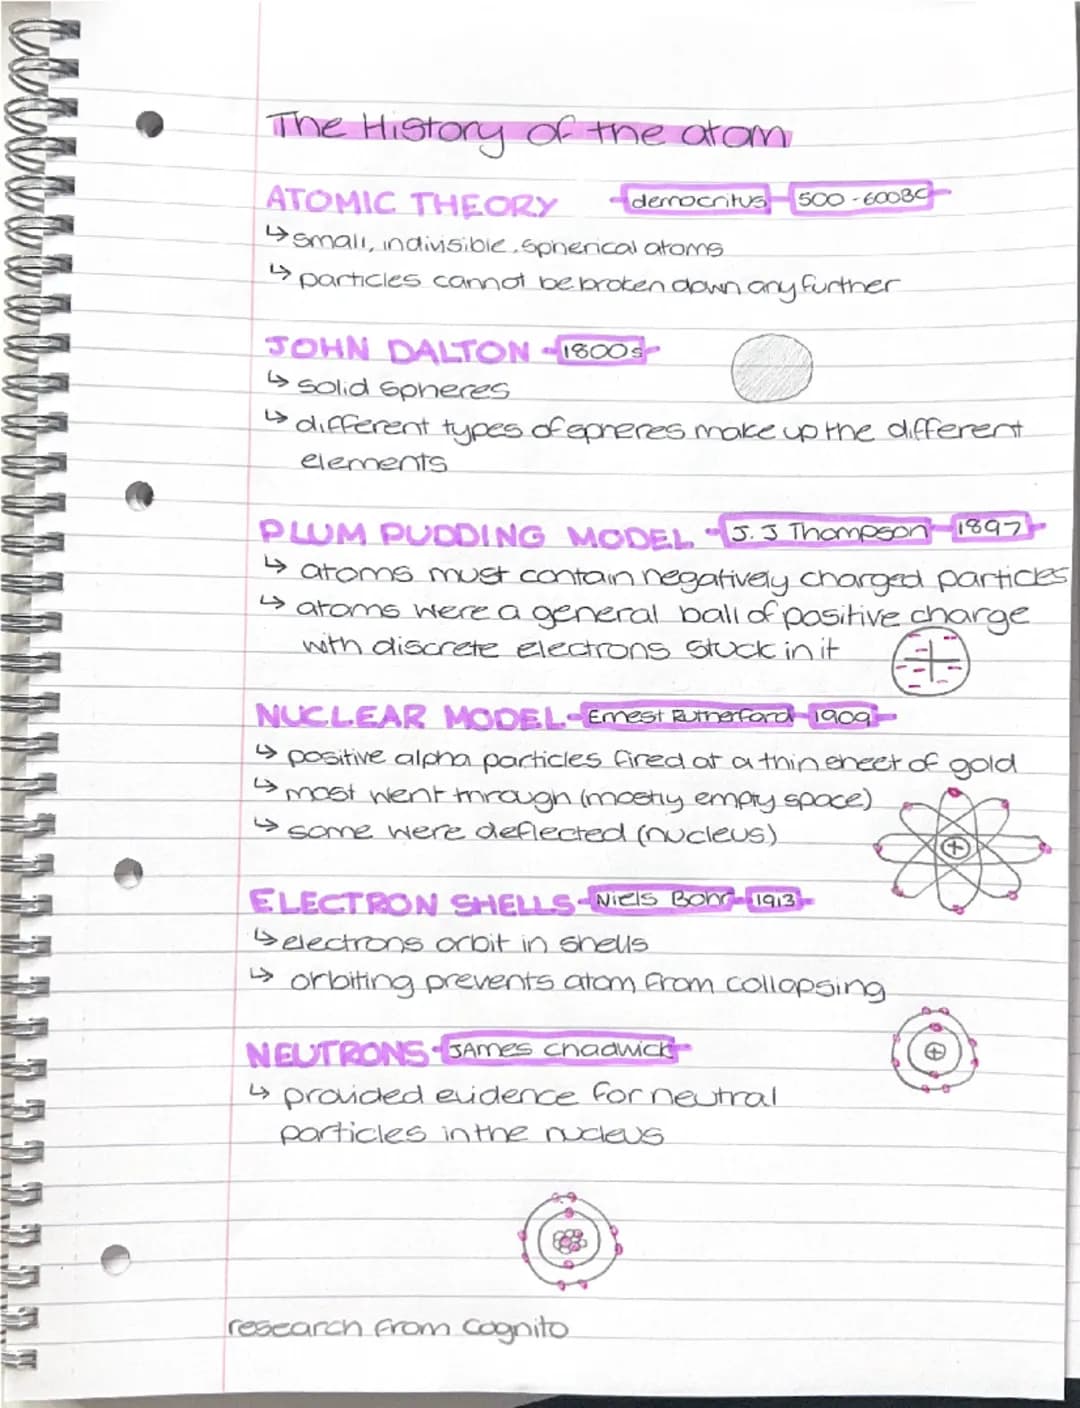 The History of the atom
ATOMIC THEORY democritus 500-600BC
↳ small, indivisible, spherical atoms
↳ particles cannot be broken down any further
JOHN DALTON 1800s
↳ solid spheres
↳ different types of spheres make up the different
elements
PLUM PUDDING MODEL J.J Thompson 1897
↳ atoms must contain negatively charged particles
↳ atoms were a general ball of positive charge
with discrete electrons stuck in it
NUCLEAR MODEL Ernest Rutherford 1909
↳ positive alpha particles fired at a thin sheet of gold
↳ most went through (mostly empty space)
↳ some were deflected (nucleus)
+
ELECTRON SHELLS Niels Bohr 1913
↳ electrons orbit in shells
↳ orbiting prevents atom from collapsing
+
NEUTRONS JAmes chadwick
↳ provided evidence for neutral
particles in the nucleus
research from Cognito